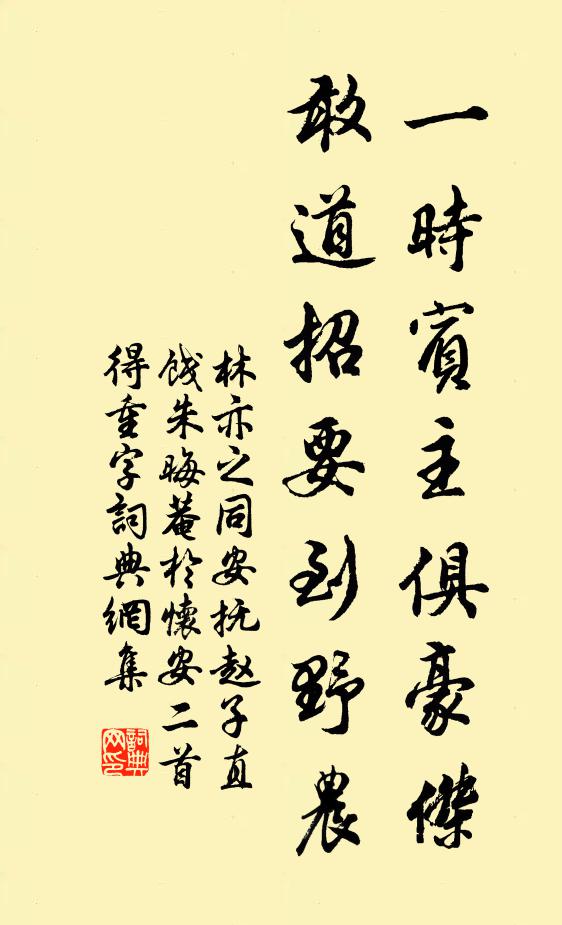 一時賓主俱豪傑
敢道招要到野農
林亦之同安抚赵子直
餞朱晦菴於懷安二首
得重字詞典網集
詞典网印